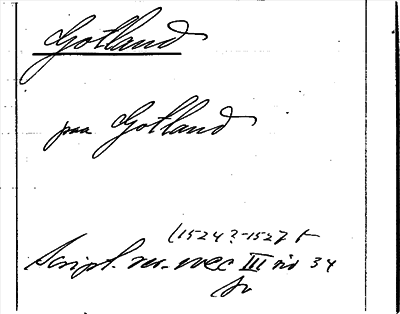 Gotland
paa Gotland
(1524?-1527 t
Script. rer. svec III sid 34